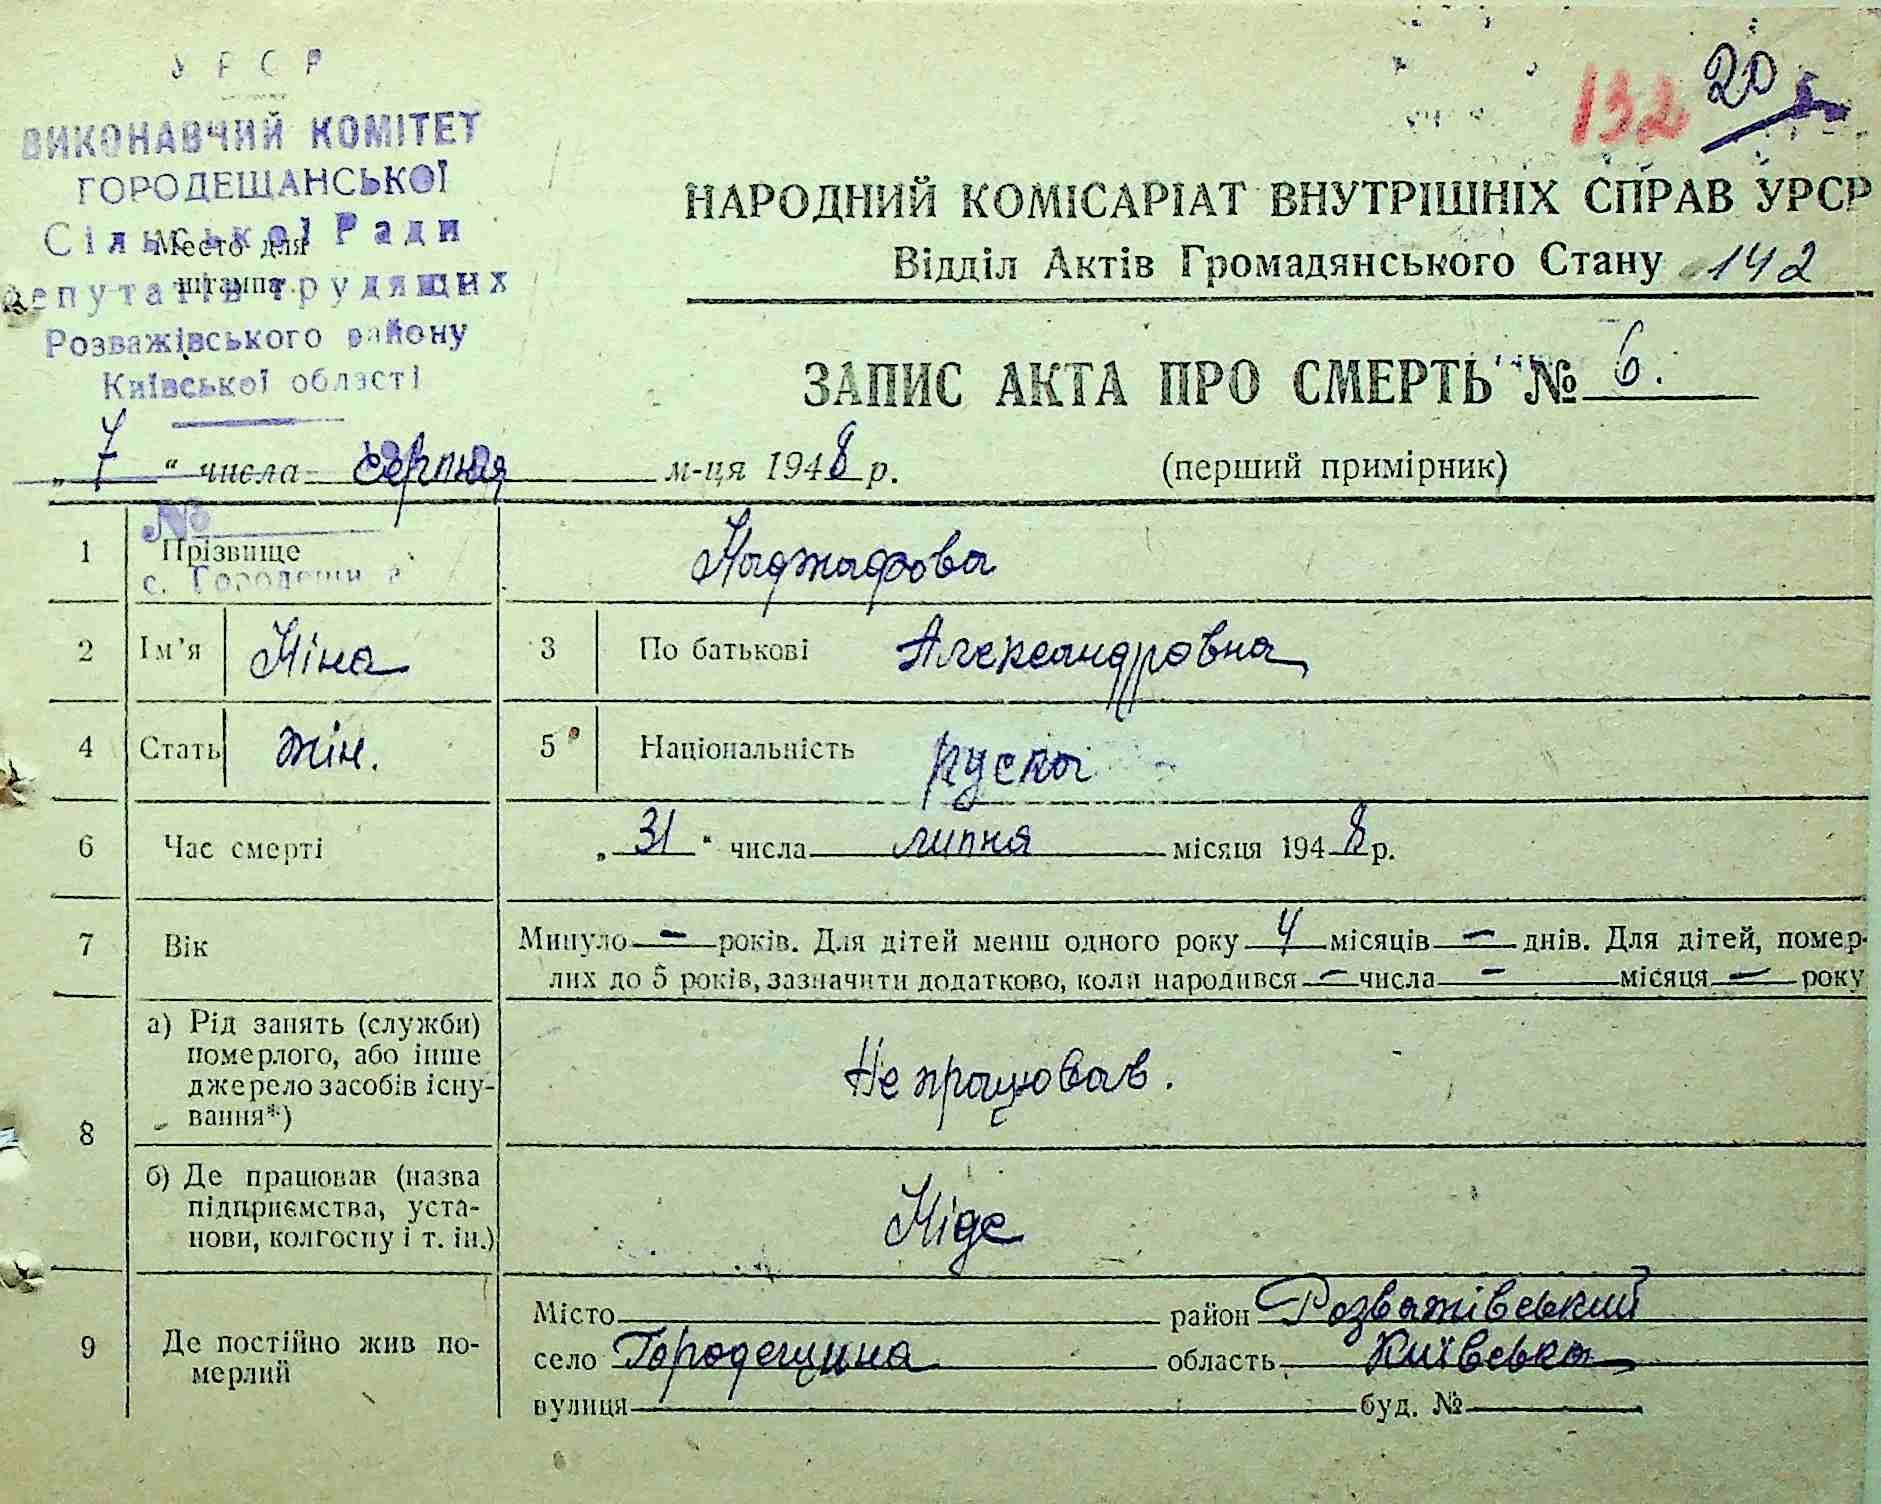 УРСР
ВИКОНАВЧИЙ КОМІТЕТ
ГОРОДЕЩАНСЬКОЇ
Сільської Ради
Место для
штампа.
депутатів трудящих
Розважівського району
Київської області
132 20
НАРОДНИЙ КОМІСАРІАТ ВНУТРІШНІХ СПРАВ УРСР
Відділ Актів Громадянського Стану 142
ЗАПИС АКТА ПРО СМЕРТЬ № 6.
„7“ числа серпня м-ця 1948 р. (перший примірник)
№
1 Прізвище Наджафова
с. Городещина
2 Ім'я Ніна 3 По батькові Александровна
4 Стать жін. 5 Національність руска
6 Час смерті „31“ числа липня місяця 1948 р.
7 Вік Минуло - років. Для дітей менш одного року 4 місяців - днів. Для дітей, помер-
лих до 5 років, зазначити додатково, коли народився - числа - місяця - року
8 а) Рід занять (служби)
померлого, або інше
джерело засобів існу-
вання*)
Не працював.
б) Де працював (назва
підприємства, уста-
нови, колгоспу і т. ін.)
Ніде
9 Де постійно жив по-
мерлий
Місто район Розважівський
село Городещина область Київська
вулиця буд. №